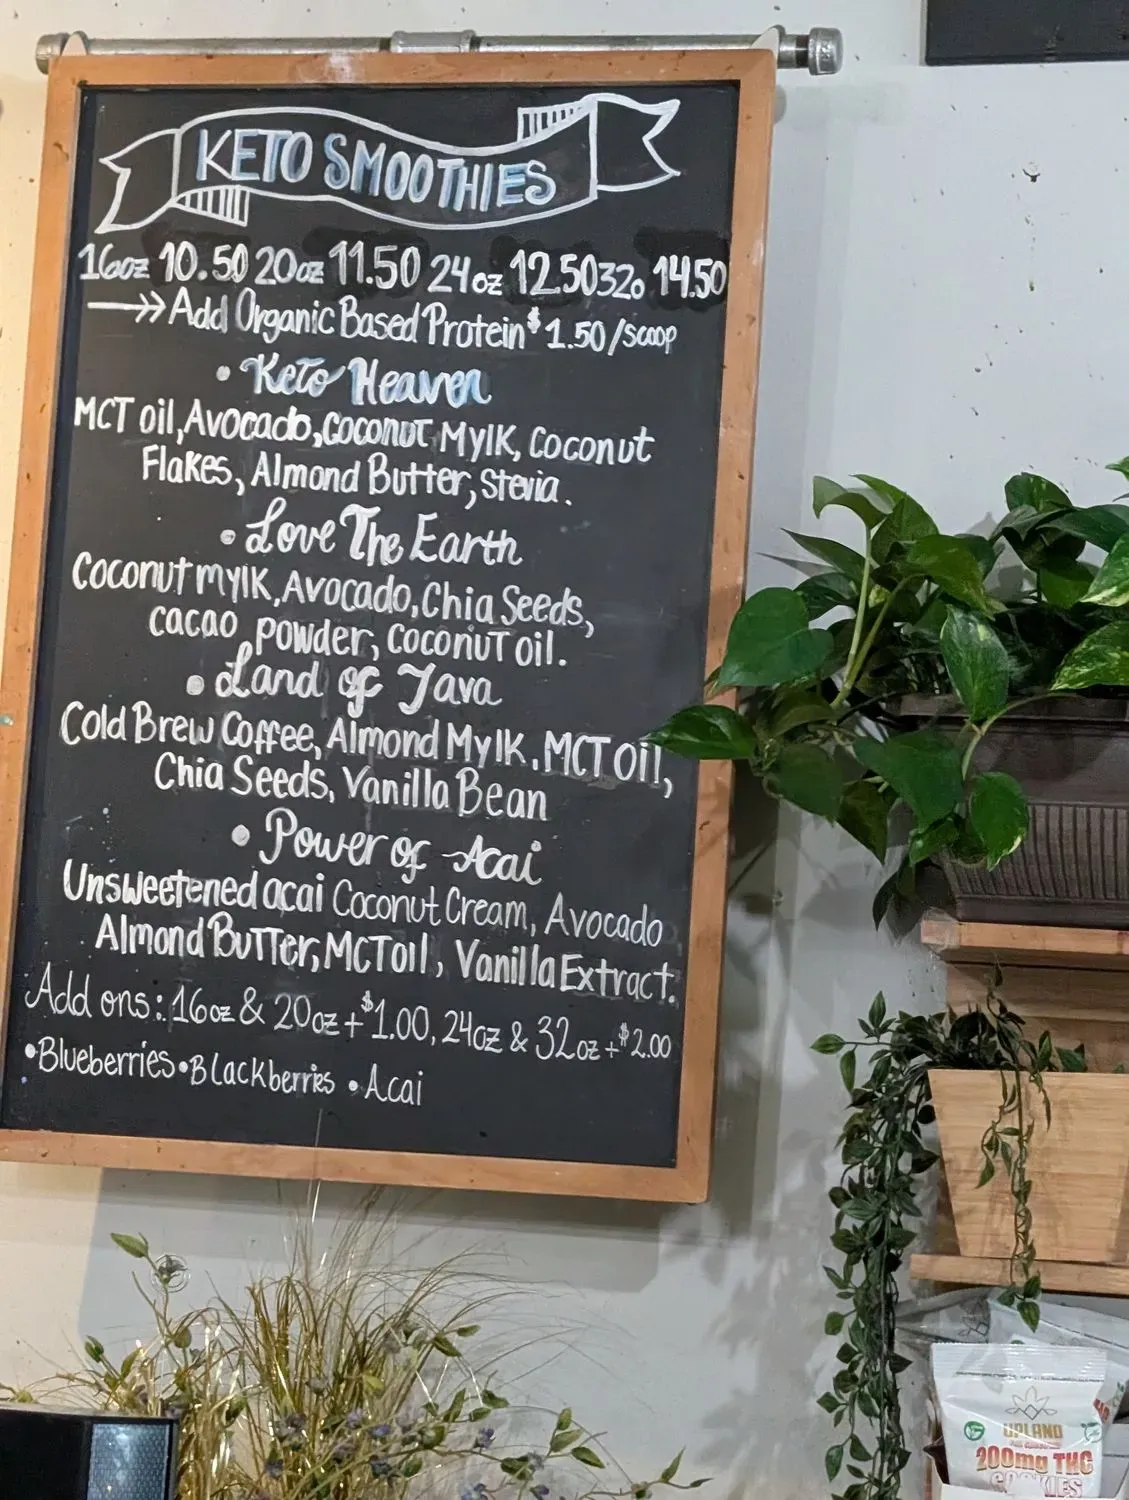 KETO SMOOTHIES
16oz 10.50 20oz 11.50 24oz 12.50 32o 14.50
Add Organic Based Protein $1.50/scoop
• Keto Heaven
MCT oil, Avocado, Coconut Mylk, Coconut
Flakes, Almond Butter, Stevia.
• Love The Earth
Coconut mylk, Avocado, Chia Seeds,
cacao powder, coconut oil.
• Land of Java
Cold Brew Coffee, Almond Mylk, MCT Oil,
Chia Seeds, Vanilla Bean
• Power of Acai
Unsweetened acai Coconut Cream, Avocado
Almond Butter, MCT oil, Vanilla Extract.
Add ons: 16oz & 20oz + $1.00, 24oz & 32oz + $2.00
• Blueberries • Blackberries • Acai
UPLAND
200mg THC
COOKIES